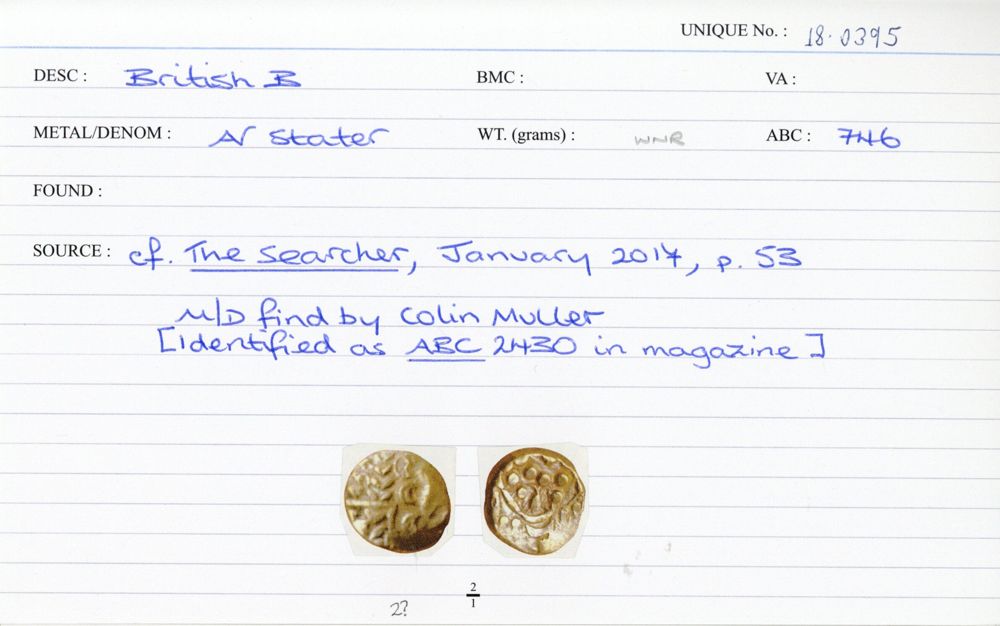 UNIQUE No. : 18.0395
DESC : British B BMC : VA :
METAL/DENOM : AV Stater WT. (grams) : WNR ABC : 746
FOUND :
SOURCE : cf. The Searcher, January 2017, p. 53
M/D find by Colin Muller
[Identified as ABC 2430 in magazine]
2
1
2?